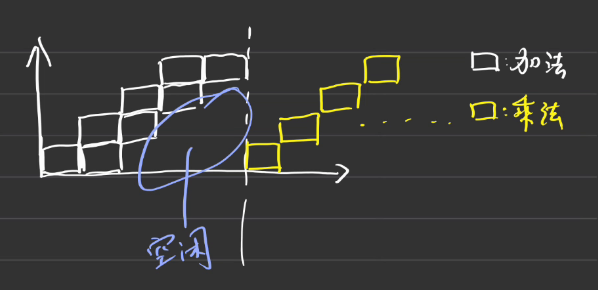 :加法
:乘法
空闲